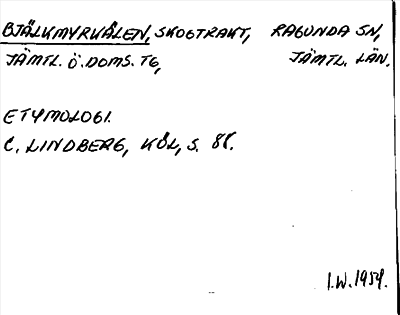 BJÄLKMYRKÅLEN, SKOGTRAKT, RAGUNDA SN,
JÄMTL. Ö. DOMS. TG, JÄMTL. LÄN.
ETYMOLOGI.
C. LINDBERG, KÖL, S.
I.W. 1954.